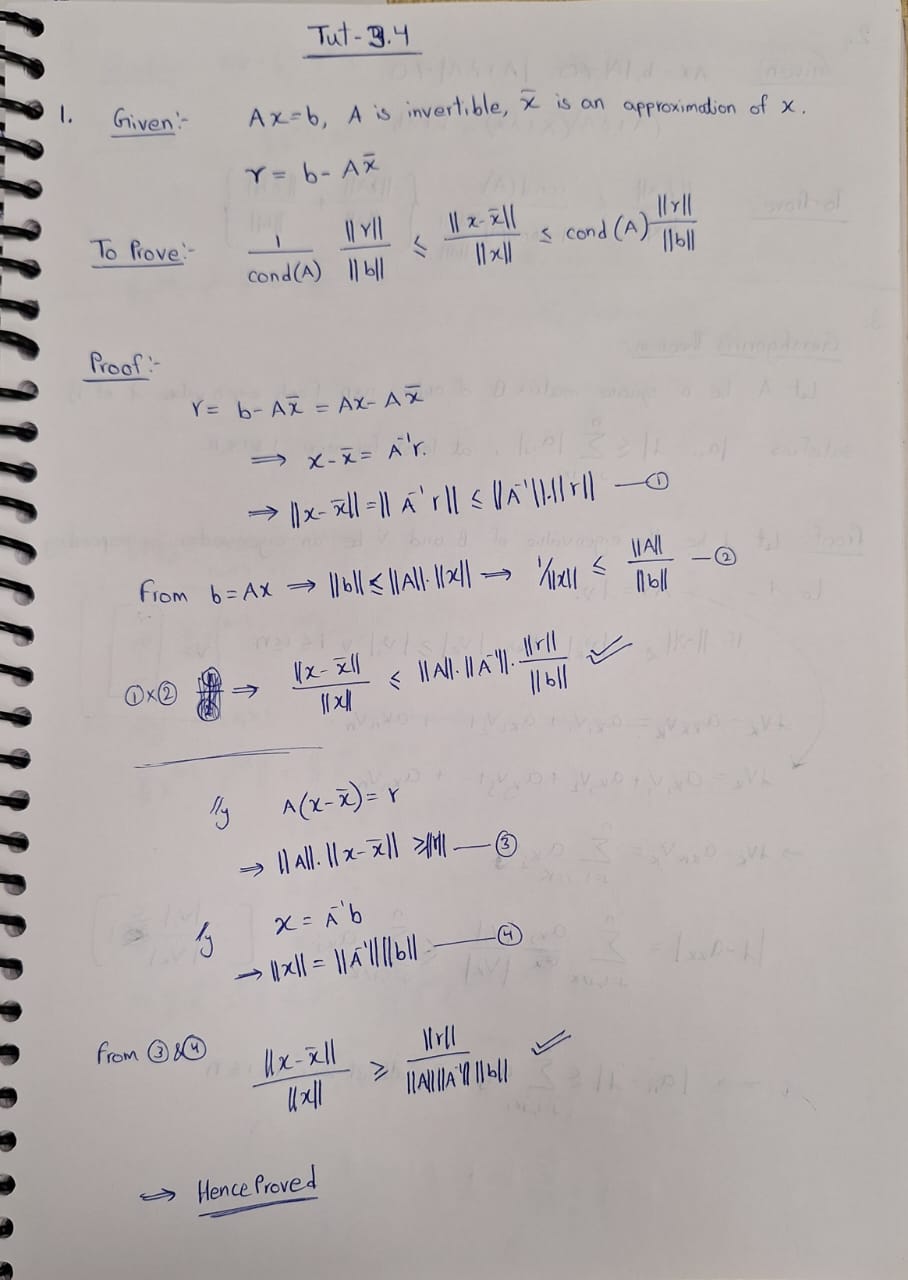 Tut-3.4
1. Given:- Ax=b, A is invertible, x̄ is an approximation of x.
r = b-Ax̄
To Prove:- 1/cond(A) ||r||/||b|| ≤ ||x-x̄||/||x|| ≤ cond(A) ||r||/||b||
Proof:-
r = b-Ax̄ = Ax-Ax̄
⟹ x-x̄ = A⁻¹r.
⟹ ||x-x̄|| = ||A⁻¹r|| ≤ ||A⁻¹||.||r|| —①
From b=Ax ⟹ ||b|| ≤ ||A||.||x|| ⟹ 1/||x|| ≤ ||A||/||b|| —②
①×② ⟹ ||x-x̄||/||x|| ≤ ||A||.||A⁻¹||.||r||/||b|| ✓
lly A(x-x̄) = r
⟹ ||A||.||x-x̄|| ≥ ||r|| —③
lly x = A⁻¹b
⟹ ||x|| = ||A⁻¹||||b|| —④
From ③&④ ||x-x̄||/||x|| ≥ ||r||/||A||||A⁻¹||||b|| ✓
⟹ Hence Proved